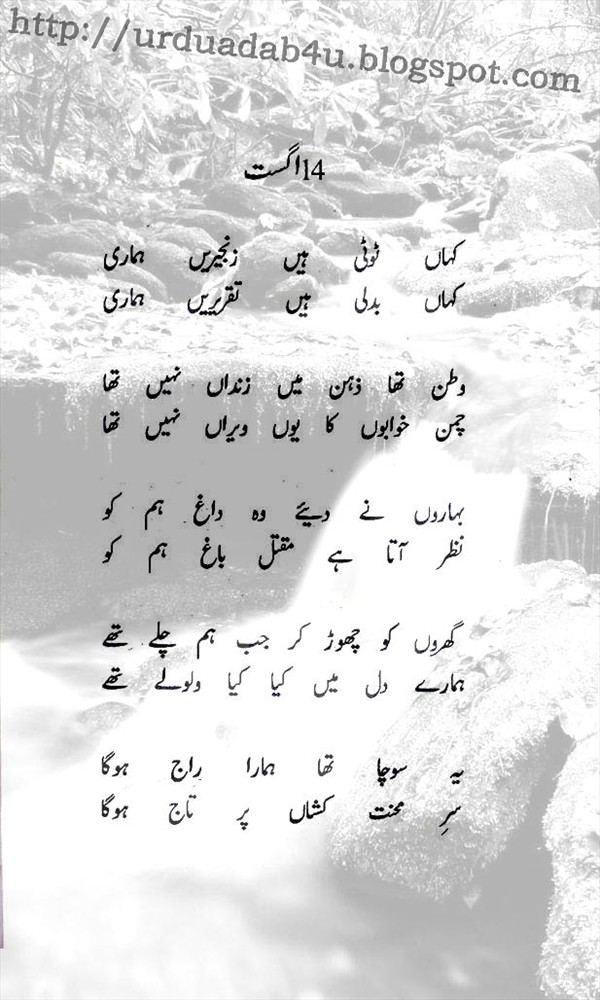 http://urduadab4u.blogspot.com
14 اگست
کہاں ٹوٹی ہیں زنجیریں ہماری
کہاں بدلی ہیں تقریریں ہماری
وطن تھا ذہن میں زنداں نہیں تھا
چمن خوابوں کا یوں ویراں نہیں تھا
بہاروں نے دیئے وہ داغ ہم کو
نظر آتا ہے مقتل باغ ہم کو
گھروں کو چھوڑ کر جب ہم چلے تھے
ہمارے دل میں کیا کیا ولولے تھے
یہ سوچا تھا ہمارا راج ہوگا
سرِ محنت کشاں پر تاج ہوگا